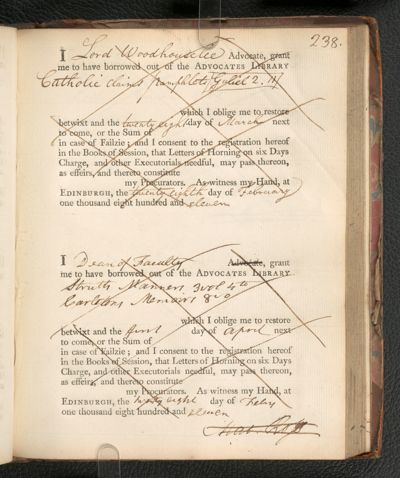 238.
I Lord Woodhouselee Advocate, grant
me to have borrowed out of the ADVOCATES LIBRARY
Catholic claims pamphlets
which I oblige me to restore
betwixt and the twenty eight day of March next
to come, or the Sum of
in case of Failzie; and I consent to the registration hereof
in the Books of Session, that Letters of Horning on six Days
Charge, and other Executorials needful, may pass thereon,
as effeirs, and thereto constitute
my Procurators. As witness my Hand, at
EDINBURGH, the twenty eighth day of February
one thousand eight hundred and eleven
I Dean of Faculty Advocate, grant
me to have borrowed out of the ADVOCATES LIBRARY
Strutts Manners 3 vol 4to
Carletons Memoirs 8vo
which I oblige me to restore
betwixt and the first day of April next
to come, or the Sum of
in case of Failzie; and I consent to the registration hereof
in the Books of Session, that Letters of Horning on six Days
Charge, and other Executorials needful, may pass thereon,
as effeirs, and thereto constitute
my Procurators. As witness my Hand, at
EDINBURGH, the twenty eight day of Feby
one thousand eight hundred and eleven